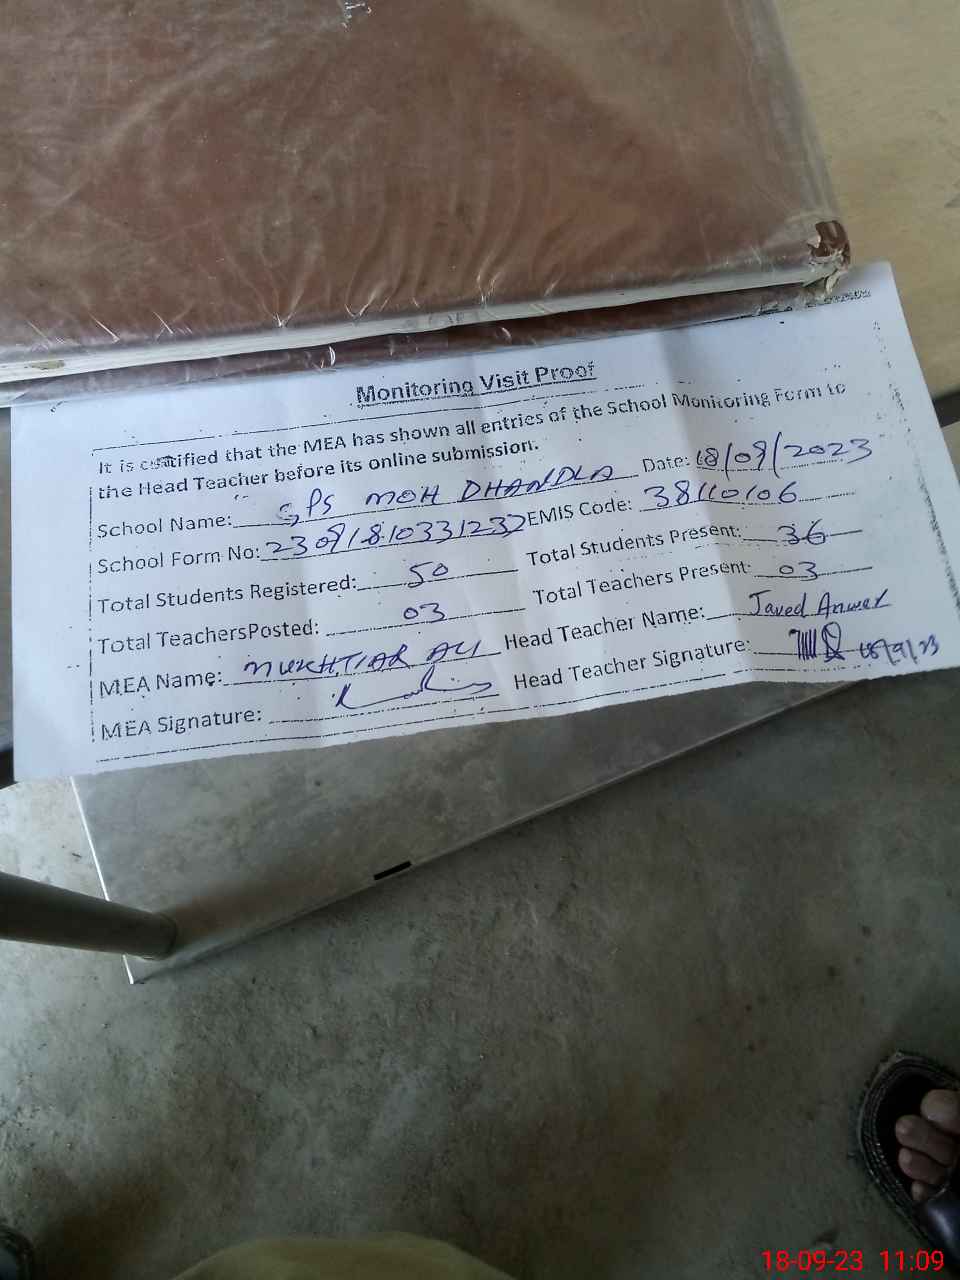 Monitoring Visit Proof
It is certified that the MEA has shown all entries of the School Monitoring Form to
the Head Teacher before its online submission.
School Name: GPS MOH DHANDLA Date: 18/09/2023
School Form No: 23091810331232 EMIS Code: 38110106
Total Students Registered: 50 Total Students Present: 36
Total TeachersPosted: 03 Total Teachers Present: 03
MEA Name: MUKHTIAR ALI Head Teacher Name: Javed Anwer
MEA Signature: Head Teacher Signature:
18-09-23 11:09